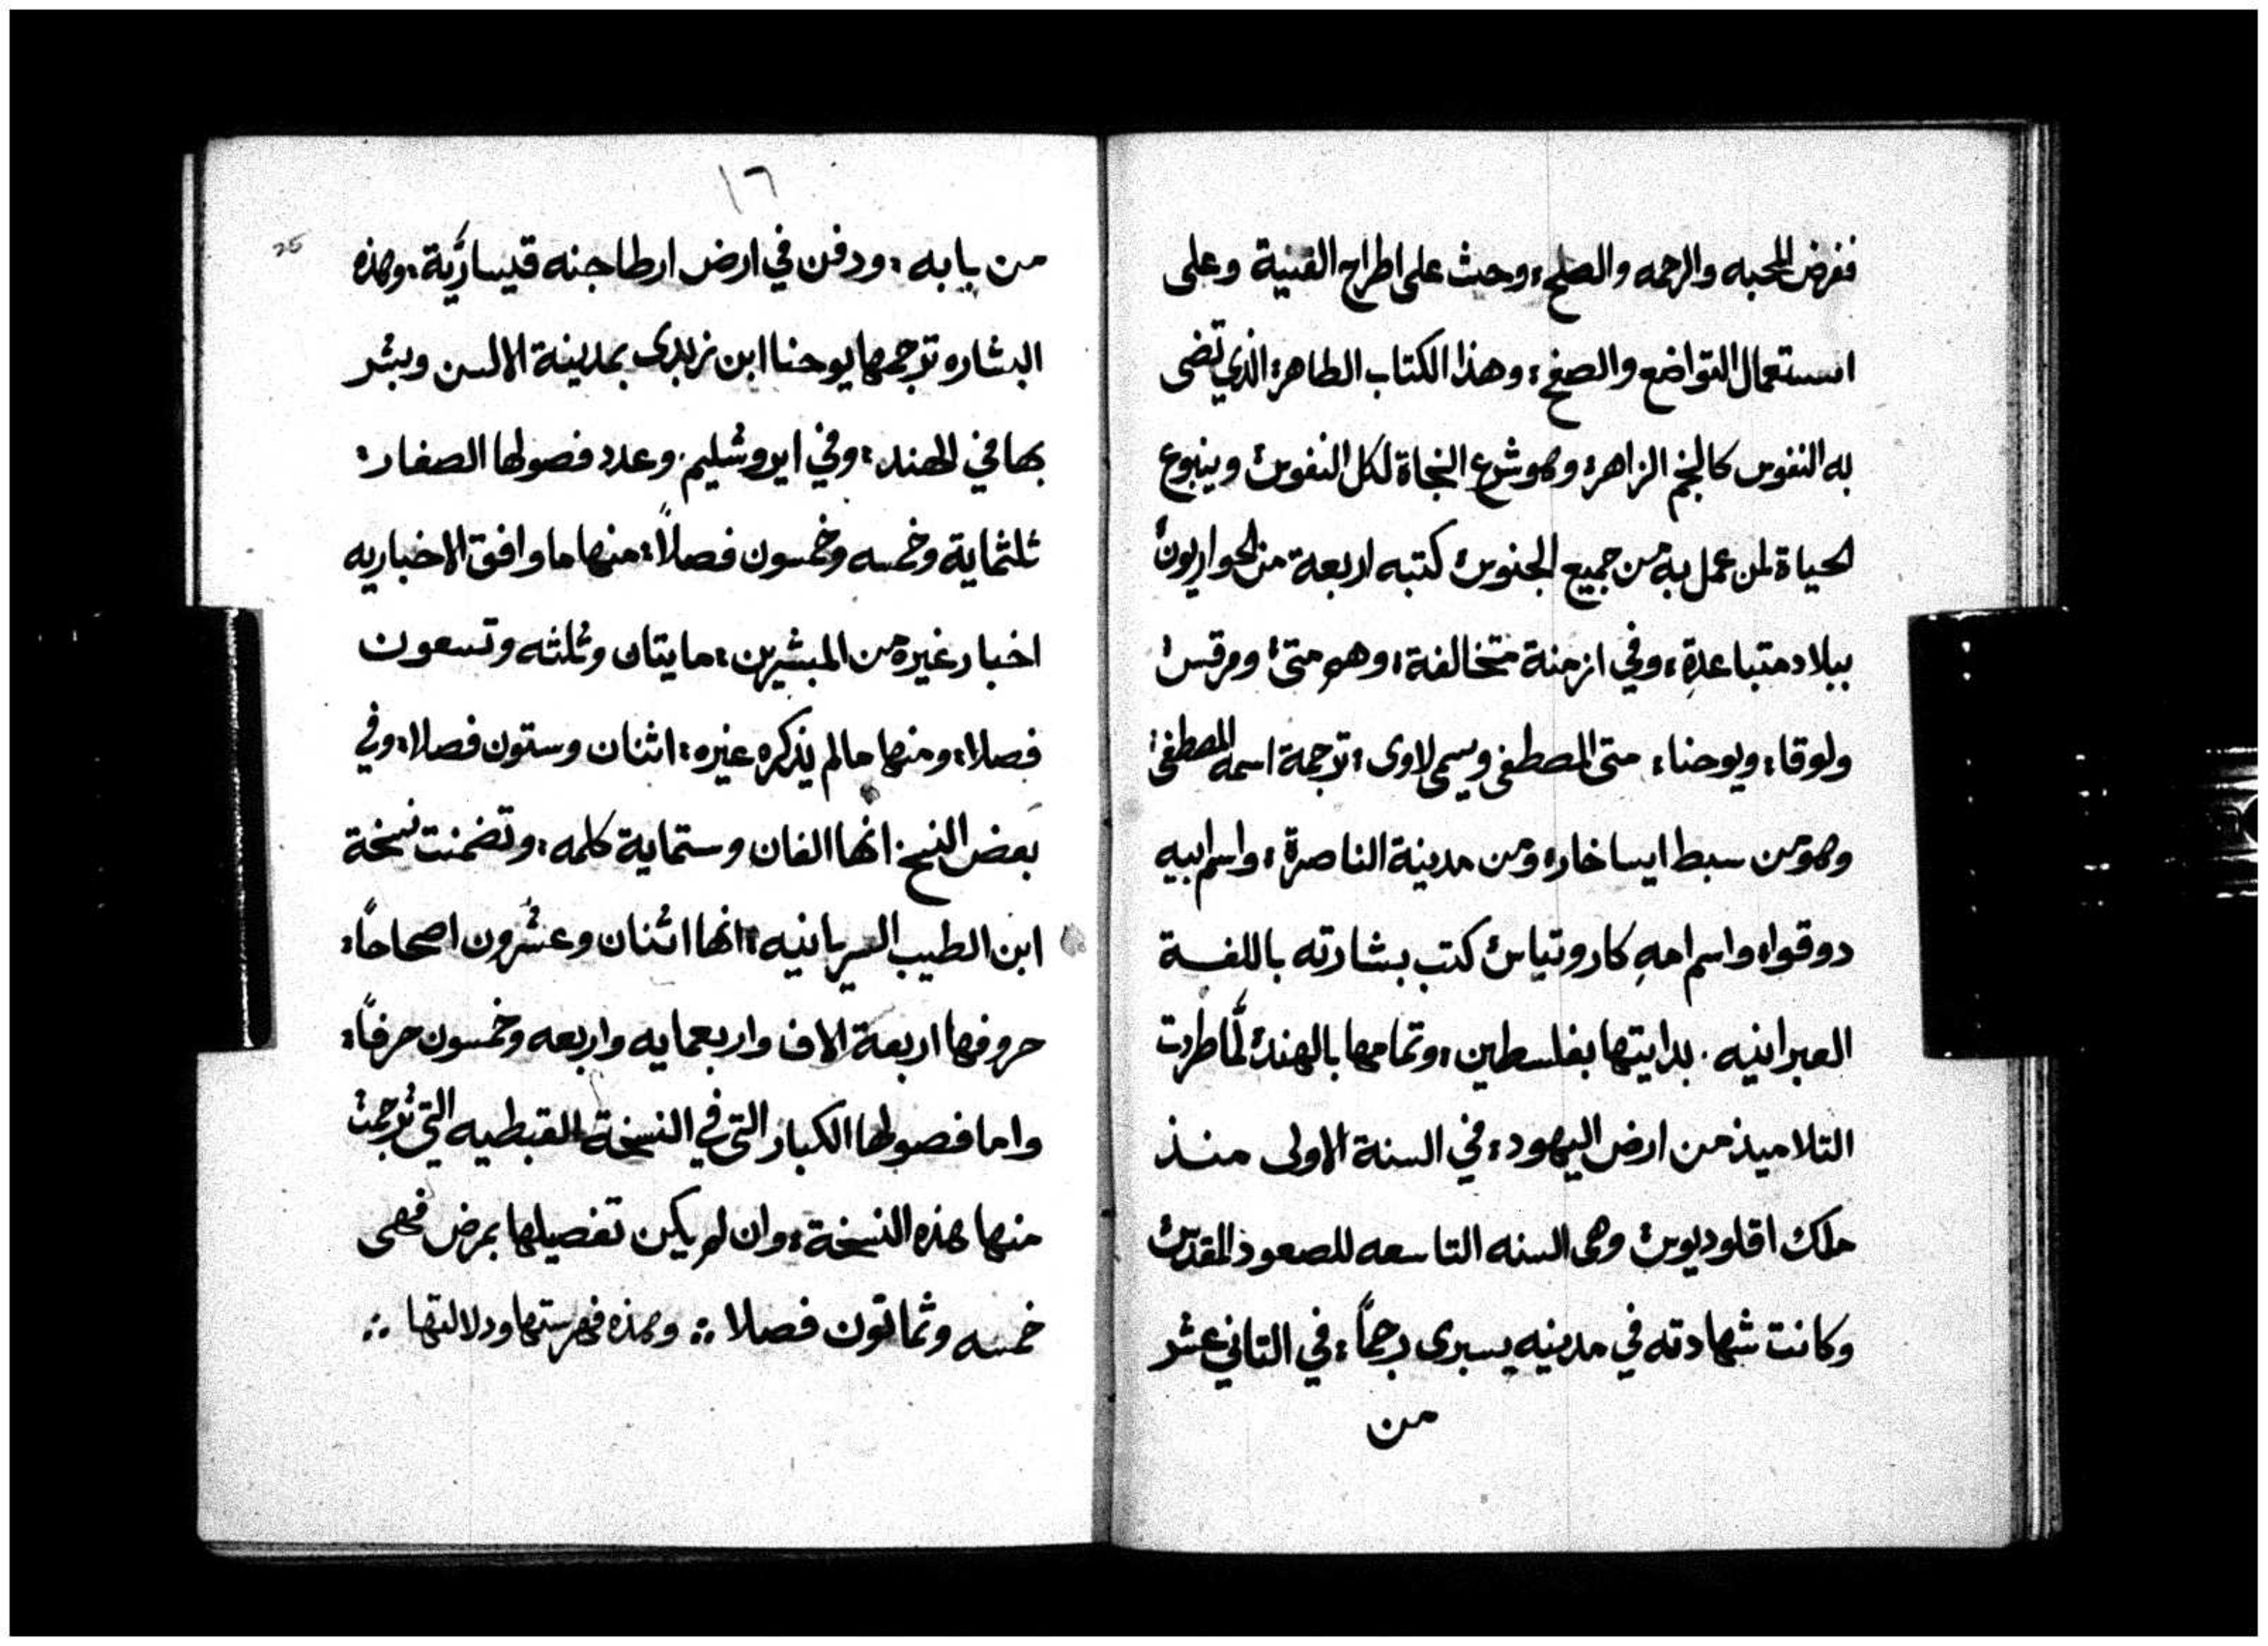 ففرض المحبه والرحمه والصلح، وحث على اطراح القنية وعلى
استعمال التواضع والصفح، وهذا الكتاب الطاهر، الذي تضى
به النفوس كالنجم الزاهر، وهو شرع النجاة لكل النفوس وينبوع
الحياة لمن عمل به من جميع الجنوس كتبه اربعة من الحواريون
ببلاد متباعدةِ، وفي ازمنة متخالفة، وهم متى ومرقس
ولوقا، ويوحنا، متى المصطفى ويسمى لاوى، ترجمة اسمه المصطفى
وهو من سبط ايساخار، ومن مدينة الناصرة، واسم ابيه
دوقوا، واسم امهِ كاروتياس كتب بشارته باللغة
العبرانيه. بدايتها بفلسطين، وتمامها بالهند، لمَّا طردت
التلاميذ من ارض اليهود، في السنة الاولى منذ
ملك اقلوديوس وهى السنه التاسعه للصعود المقدس
وكانت شهادته في مدينه يسبرى رجماً، في الثاني عشر
من
١٦
25
من بابه، ودفن في ارض ارطاجنه قيساريَّة، وهذه
البشاره ترجمها يوحنا ابن زبدى بمدينة الالسن وبشر
بها في الهند، وفي ايروشليم. وعدد فصولها الصغار،
ثلثماية وخمسه وخمسون فصلاً، منها ما وافق الاخباريه
اخبار غيره من المبشرين، مايتان وثلثه وتسعون
فصلا، ومنها مالم يذكره غيره، اثنان وستون فصلا، وفي
بعض النسخ انها الفان وستماية كلمه، وتضمنت نسخة
ابن الطيب السريانيه، انها اثنان وعشرون اصحاحاً،
حروفها اربعة الاف واربعمايه واربعه وخمسون حرفاً،
واما فصولها الكبار التى في النسخة القبطيه التي ترجمت
منها هذه النسخة، وان لم يكن تفصيلها بمرض فهى
خمسه وثمانون فصلا ⁘ وهذه فهرستها ودلالتها ⁘